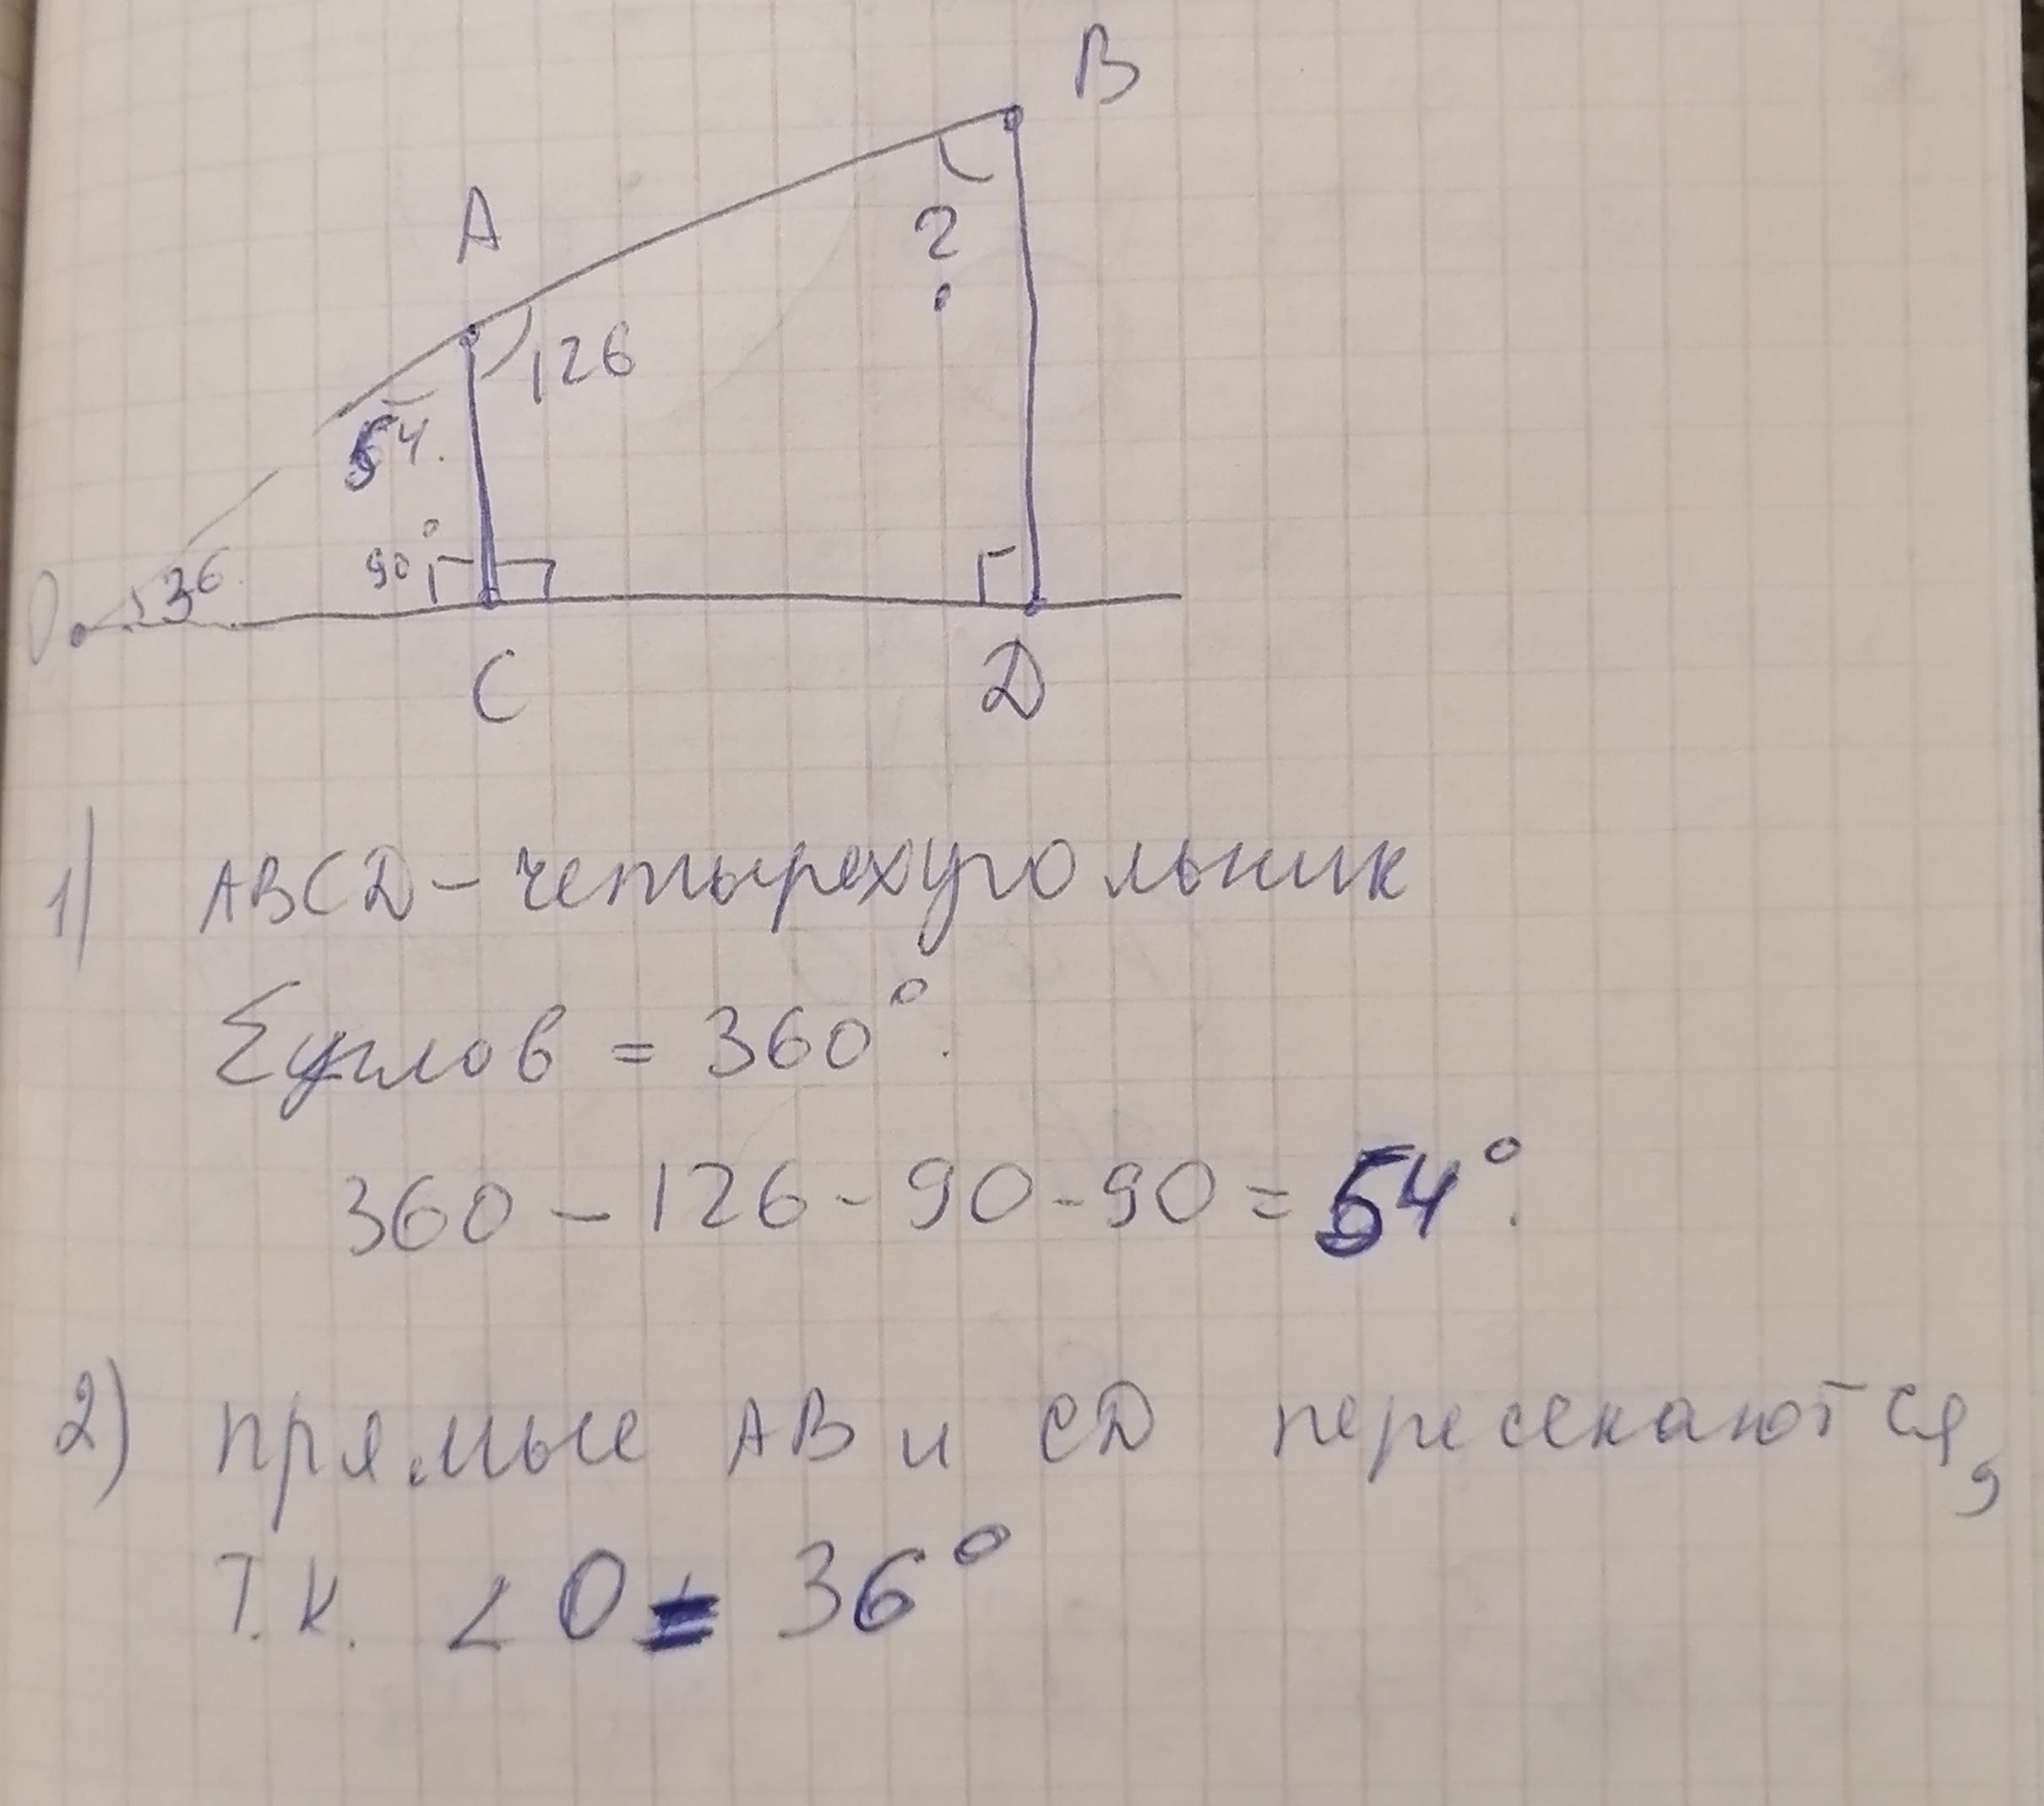 B
A
?
126
54.
90°
36
O
C D
1) ABCD - четырехугольник
Σуглов = 360°.
360 - 126 - 90 - 90 = 54°.
2) прямые AB и CD пересекаются,
т.к. ∠O = 36°